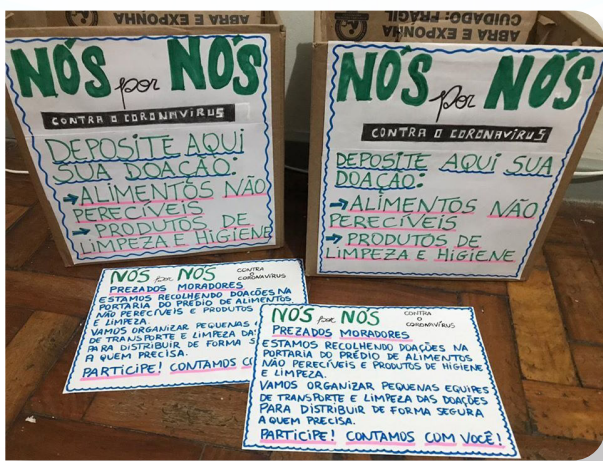 ABRA E EXPONHA
CUIDADO: FRÁGIL
NÓS por NÓS
CONTRA O CORONAVÍRUS
DEPOSITE AQUI
SUA DOAÇÃO:
→ALIMENTOS NÃO
PERECÍVEIS
→PRODUTOS DE
LIMPEZA E HIGIENE
ABRA E EXPONHA
CUIDADO: FRÁGIL
NÓS por NÓS
CONTRA O CORONAVÍRUS
DEPOSITE AQUI SUA
DOAÇÃO:
→ALIMENTOS NÃO
PERECÍVEIS
→PRODUTOS DE
LIMPEZA E HIGIENE
NÓS por NÓS CONTRA
O
CORONAVÍRUS
PREZADOS MORADORES
ESTAMOS RECOLHENDO DOAÇÕES NA
PORTARIA DO PRÉDIO DE ALIMENTOS
NÃO PERECÍVEIS E PRODUTOS
E LIMPEZA.
VAMOS ORGANIZAR PEQUENAS
DE TRANSPORTE E LIMPEZA DAS
PARA DISTRIBUIR DE FORMA
A QUEM PRECISA.
PARTICIPE! CONTAMOS
NÓS por NÓS CONTRA
O
CORONAVÍRUS
PREZADOS MORADORES
ESTAMOS RECOLHENDO DOAÇÕES NA
PORTARIA DO PRÉDIO DE ALIMENTOS
NÃO PERECÍVEIS E PRODUTOS DE HIGIENE
E LIMPEZA.
VAMOS ORGANIZAR PEQUENAS EQUIPES
DE TRANSPORTE E LIMPEZA DAS DOAÇÕES
PARA DISTRIBUIR DE FORMA SEGURA
A QUEM PRECISA.
PARTICIPE! CONTAMOS COM VOCÊ!